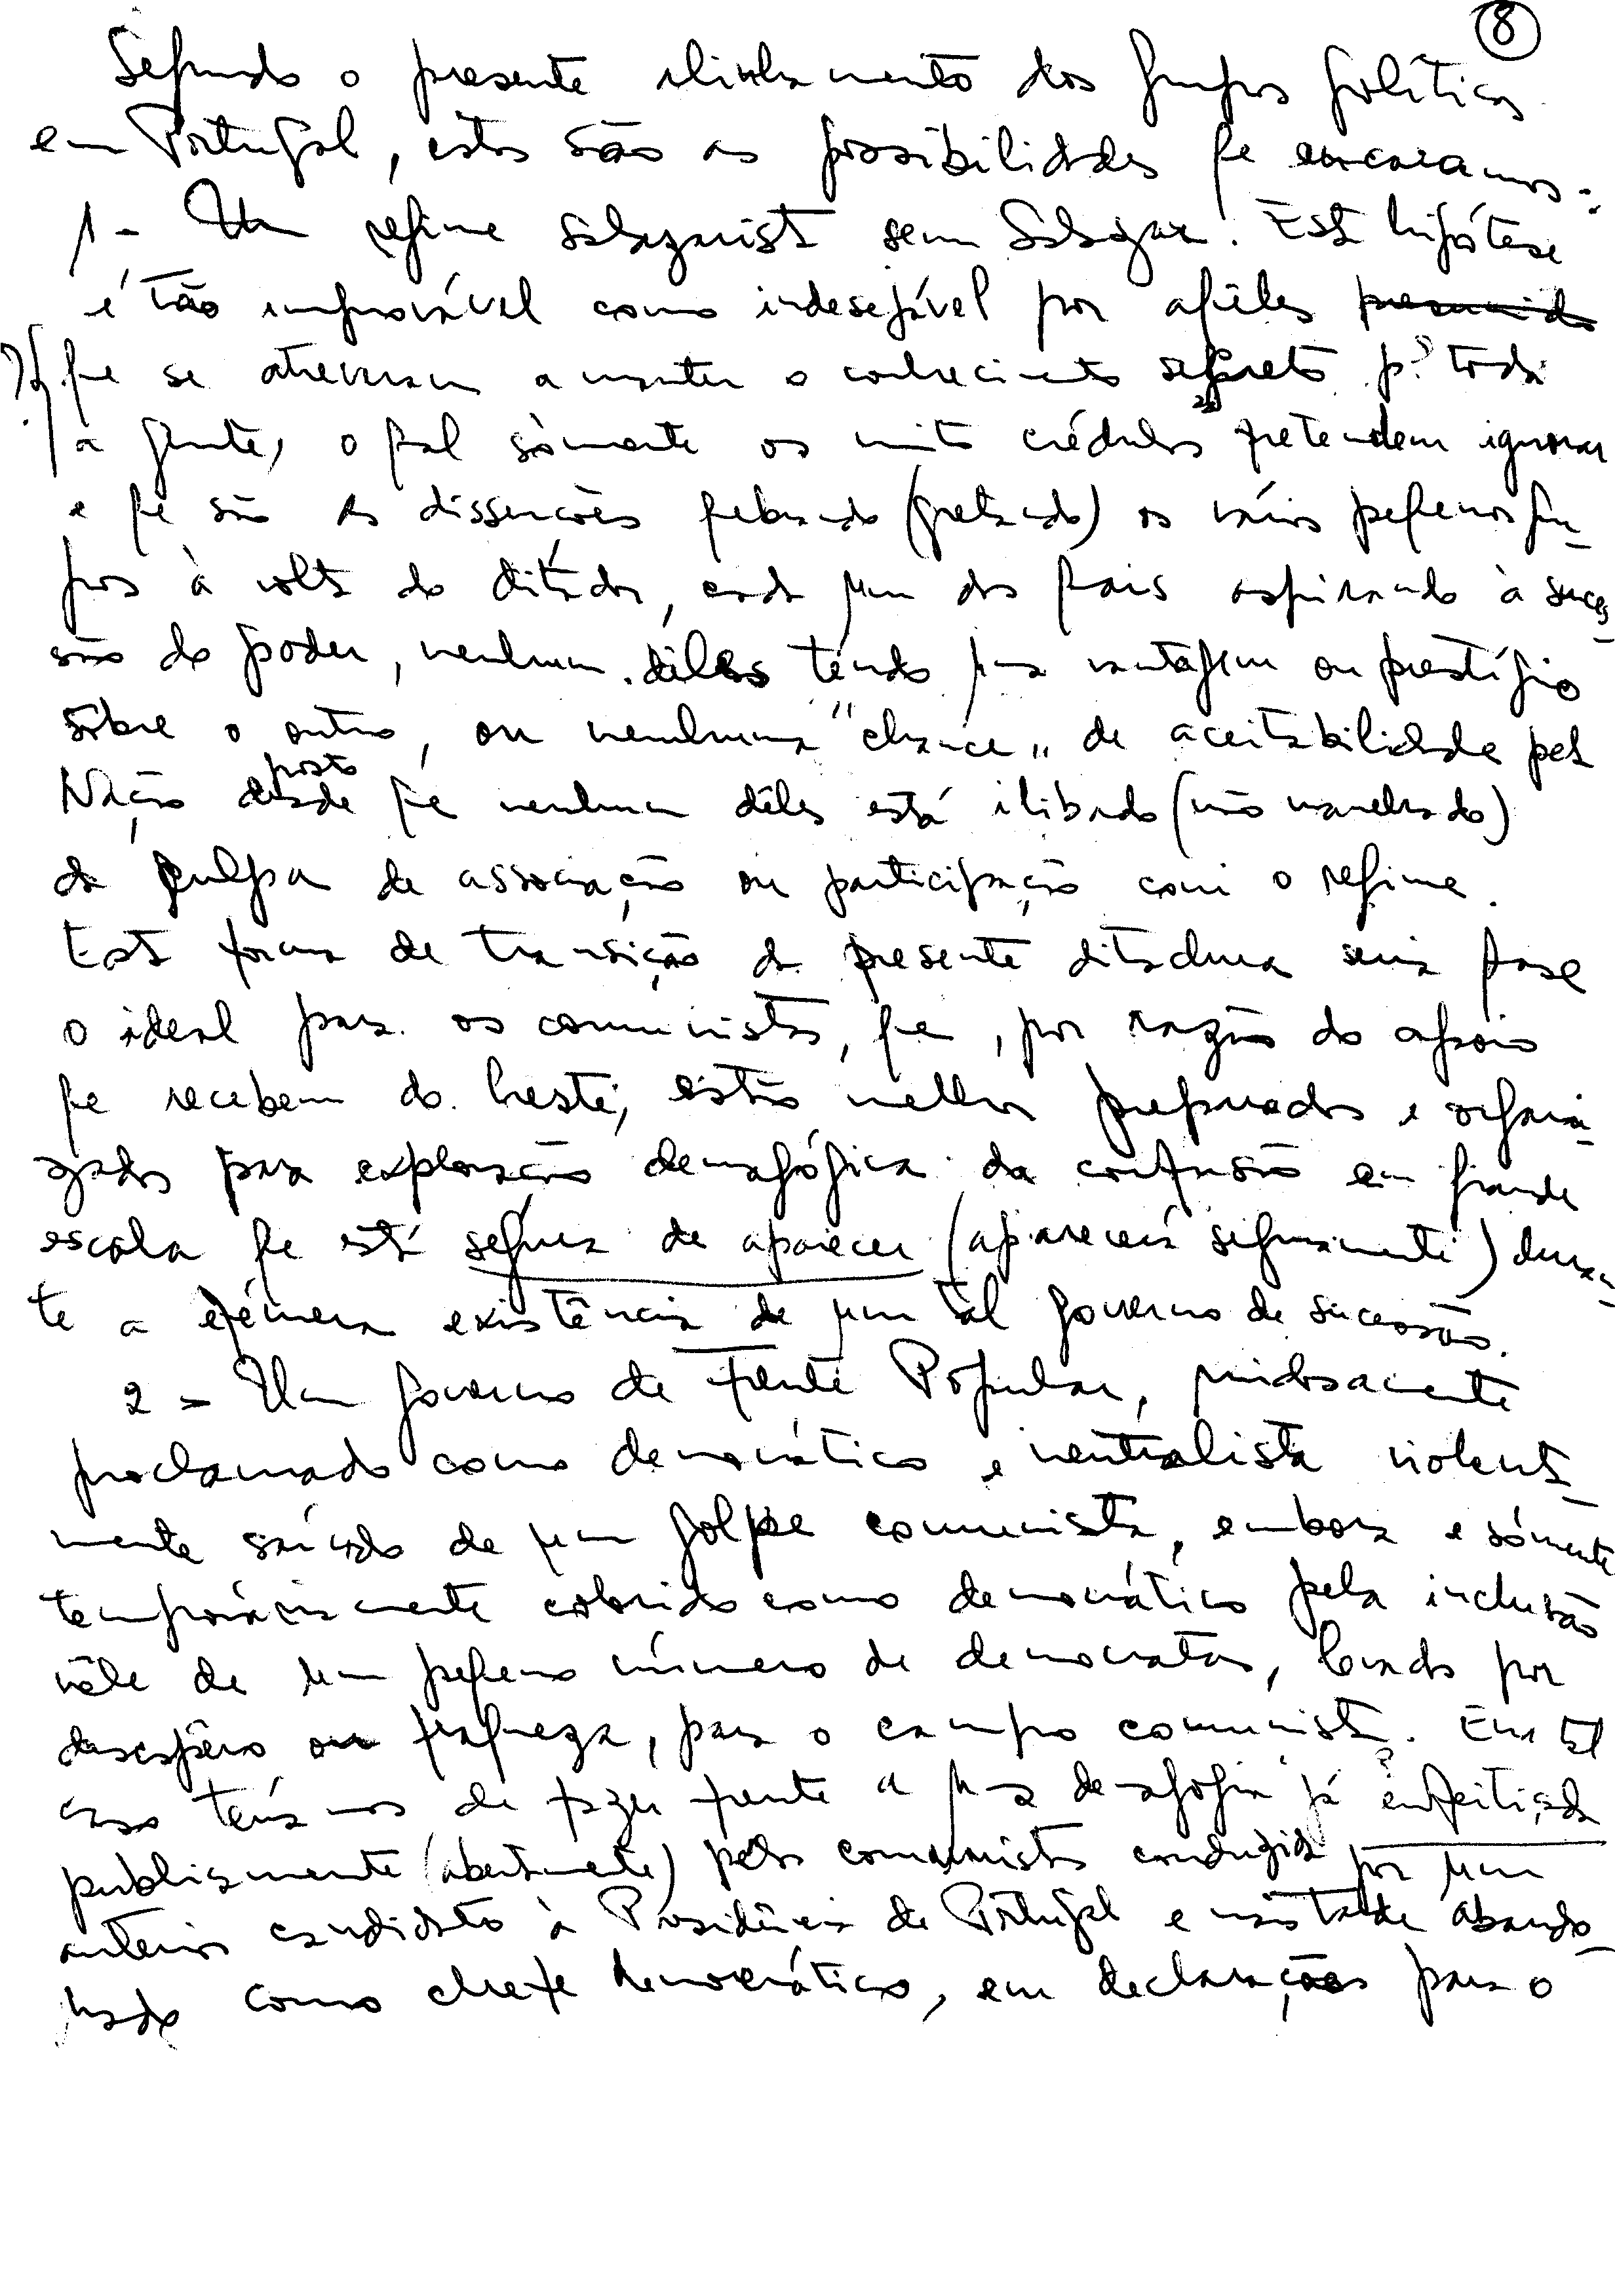 8
Segundo o presente alinhamento dos grupos políticos
em Portugal, estas são as possibilidades qe encaramos:
1 - Um regime salazarista sem Salazar. Esta hipótese
é tão improvável como indesejável por aqueles
qe se atreveram a manter o conhecimento secreto pª toda
a gente, o qal sòmente os muito crédulos pretendem ignorar
e qe são as dissenções os vários pequenos gru-
pos à volta do ditador, cada um dos qais aspirando à suces-
são do poder, nenhum dêles tendo uma vantagem ou prestígio
sôbre o outro, ou nenhuma "chance" de aceitabilidade pela
posto
Nação desde qe nenhum dêles está ilibado (não manchado)
da culpa de associação ou participação com o regime.
Esta forma de transição da presente ditadura seria qase
o ideal para os comunistas, qe, por razão do apoio
qe recebem do Leste, estão melhor preparados e organi-
zados para exploração demagógica da confusão em grande
escala qe está segura de aparecer (aparecerá seguramente) duran-
te a efémera existência de um tal governo de sucessão.
2 - Um governo de Frente Popular, ruidosamente
proclamado como democrático e neutralista violenta-
mente saído de um golpe comunista, embora e sómente
temporáriamente colorido como democrático pela inclusão
nêle de um pequeno número de democratas, levado por
desespêro ou fraqueza, para o campo comunista. Em tal
caso teríamos de fazer frente a uma demagogia já enfeitiçada
publicamente (abertamente) pelos comunistas conduzida por um
anterior candidato à Presidência de Portugal e mais tarde abando-
nado como chefe democrático, em declarações para o